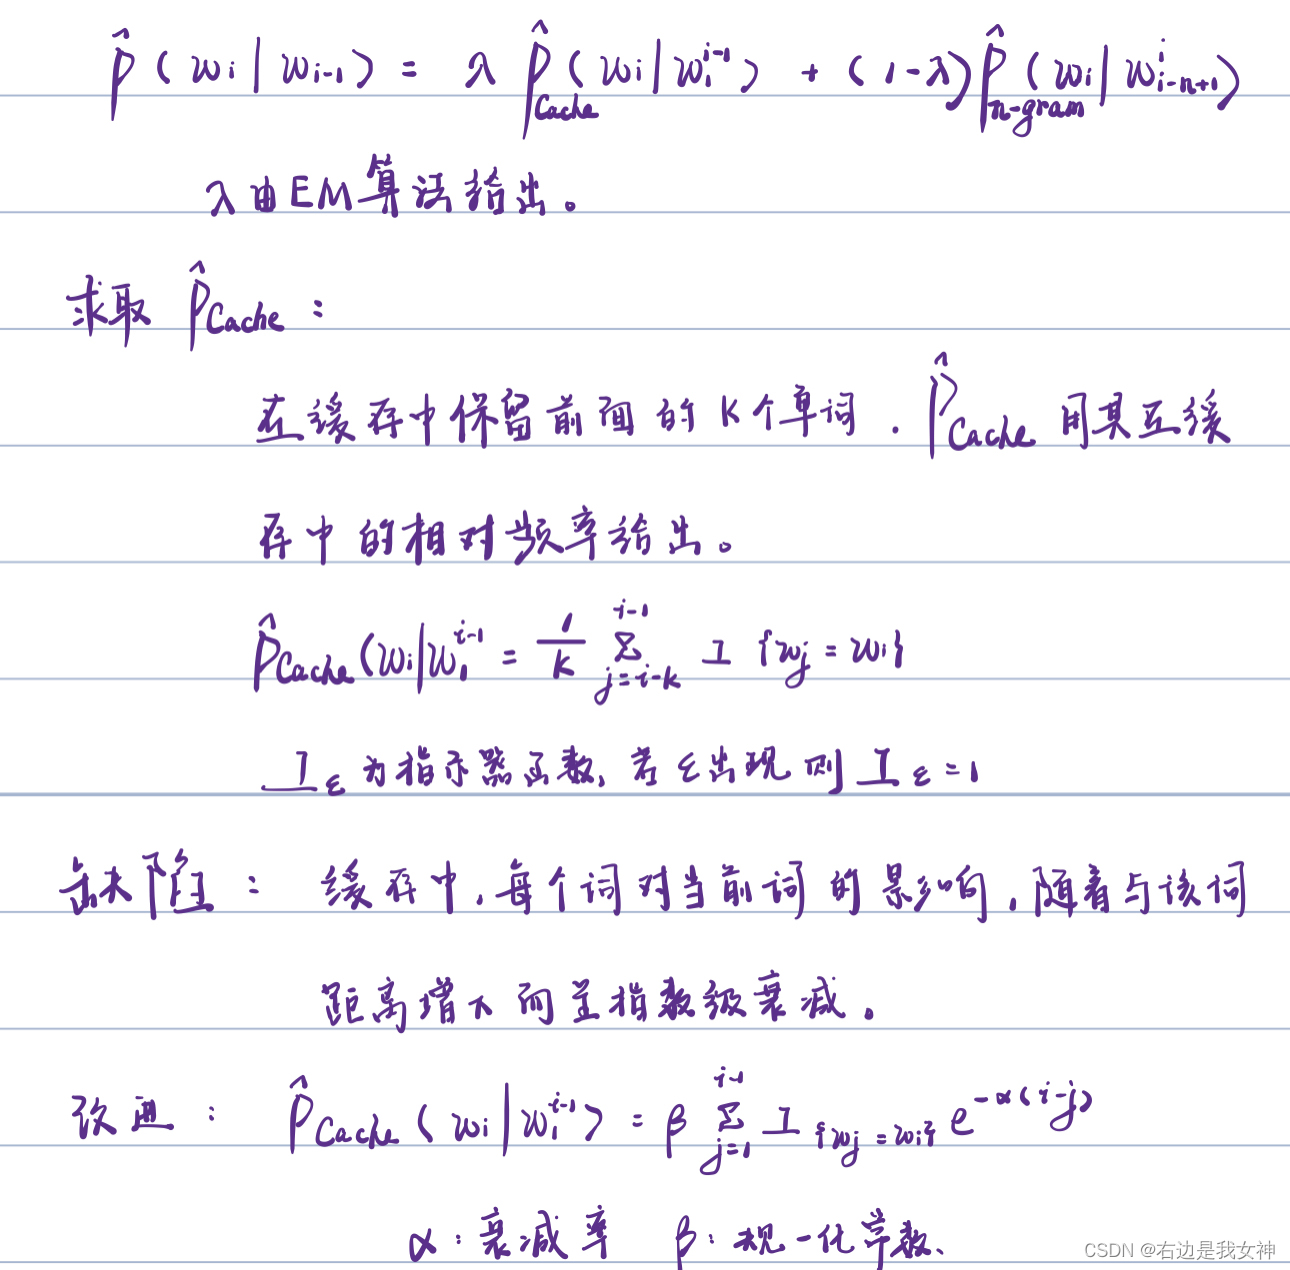 P̂(wi|wi-1) = λ P̂Cache(wi|w₁^{i-1}) + (1-λ)P̂n-gram(wi|w_{i-n+1}^{i})
λ由EM算法给出。
求取 P̂Cache:
在缓存中保留前面的K个单词. P̂Cache 用其互缓
存中的相对频率给出。
P̂Cache(wi|w₁^{i-1} = 1/k Σ_{j=i-k}^{i-1} I {wj = wi}
I_ε 为指示器函数, 若ε出现则 I_ε = 1
缺陷: 缓存中,每个词对当前词的影响,随着与该词
距离增大而呈指数级衰减。
改进: P̂Cache(wi|w₁^{i-1}) = β Σ_{j=1}^{i-1} I_{{wj = wi}} e^{-α(i-j)}
α:衰减率 β:规一化常数、
CSDN @右边是我女神